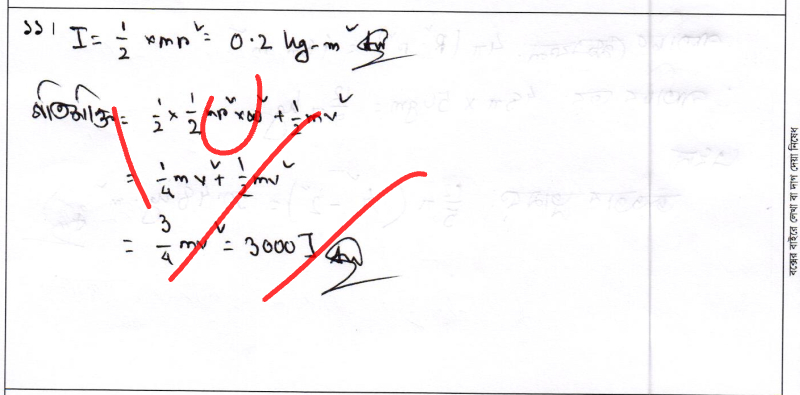 ১১। I = 1/2 × mr² = 0.2 kg-m² Ans
গতিশক্তি = 1/2 × 1/2 mr² × ω² + 1/2 mv²
= 1/4 mv² + 1/2 mv²
= 3/4 mv² = 3000 J Ans
বক্সের বাইরে লেখা বা দাগ দেয়া নিষেধ